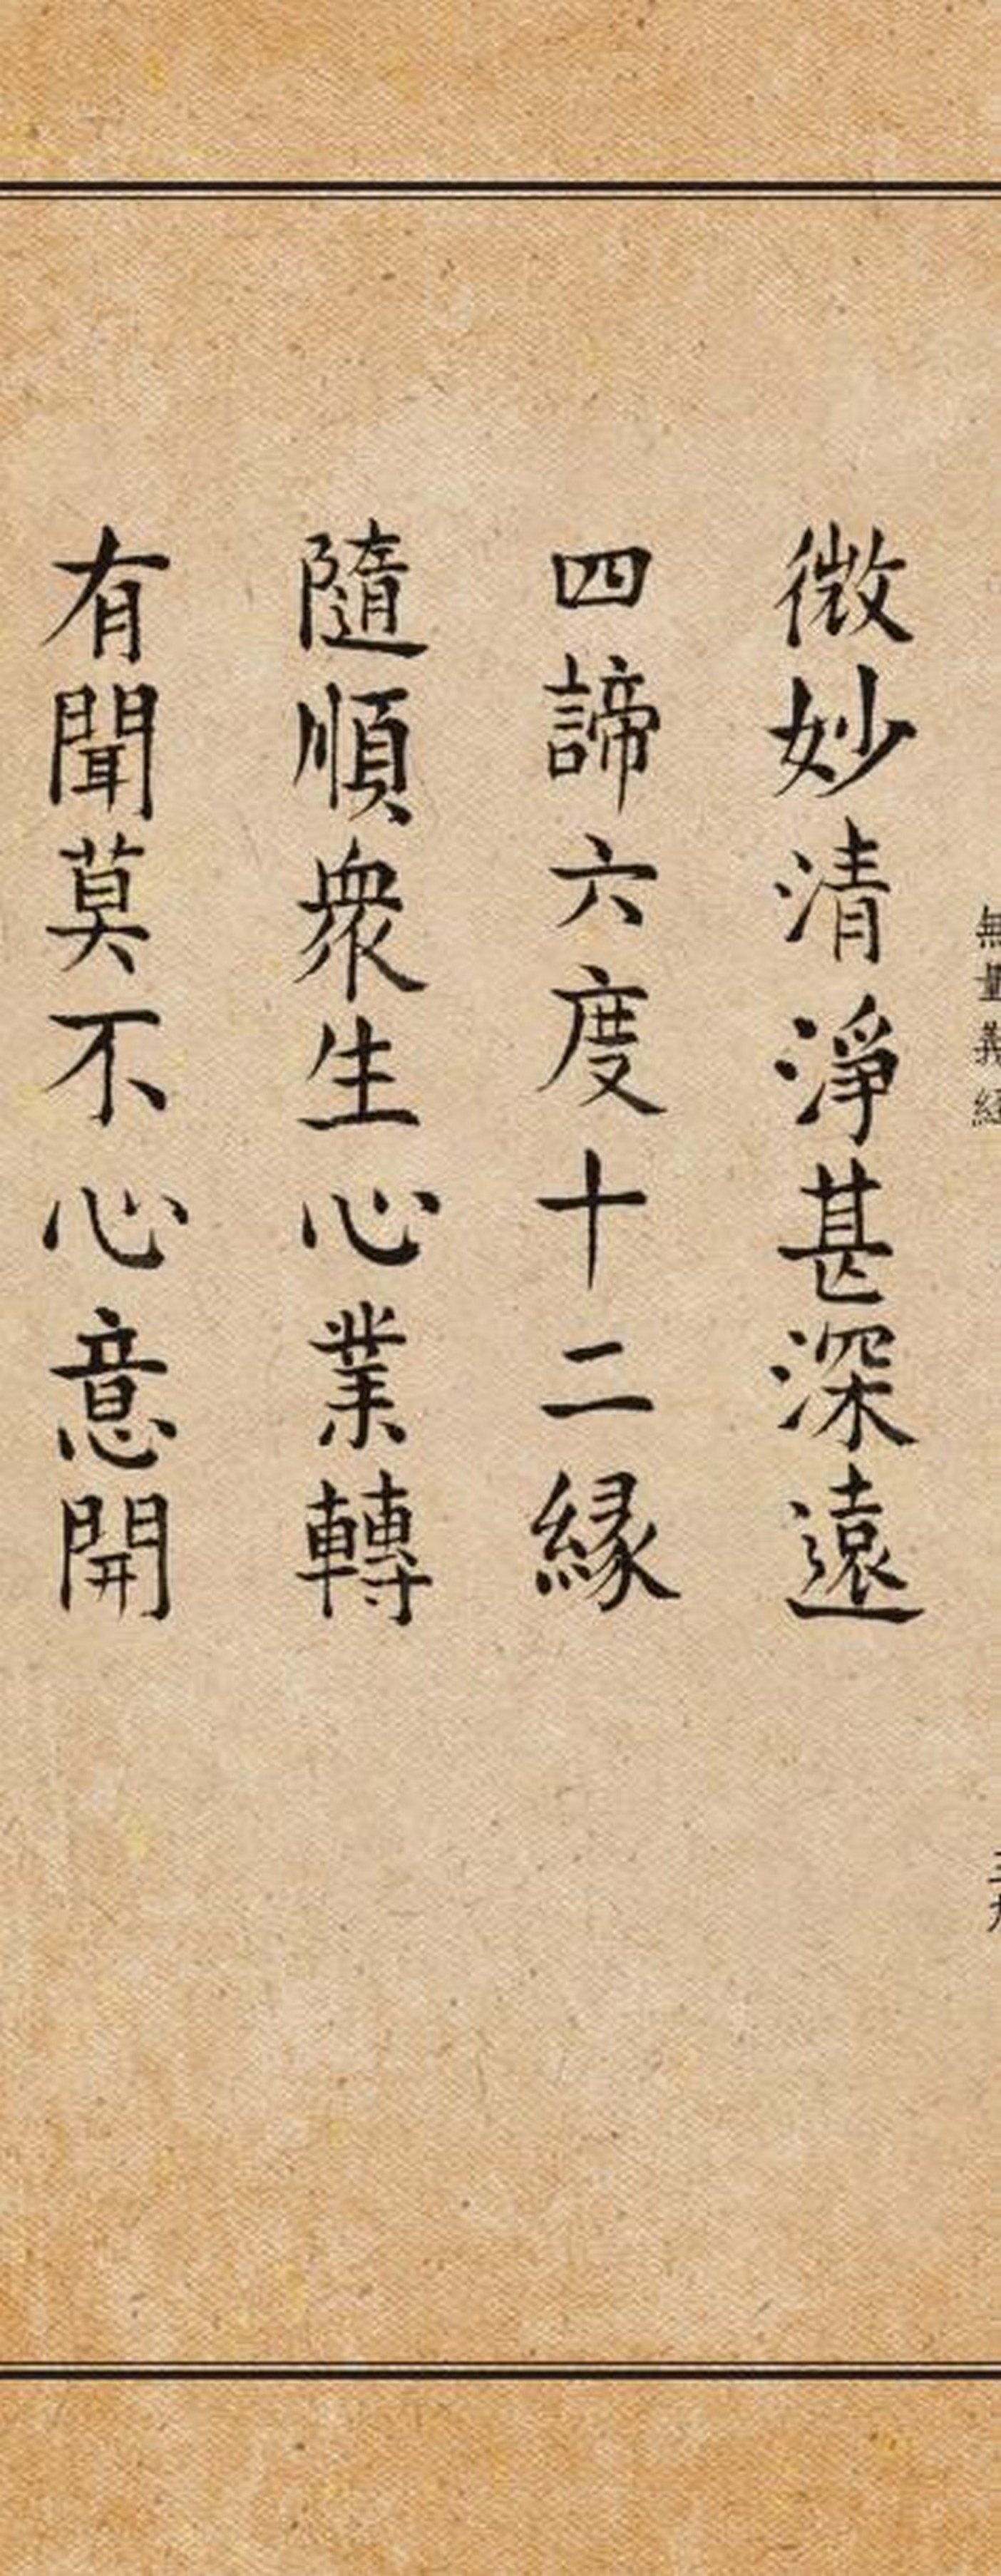 無量義經
微妙清淨甚深遠
四諦六度十二緣
隨順衆生心業轉
有聞莫不心意開